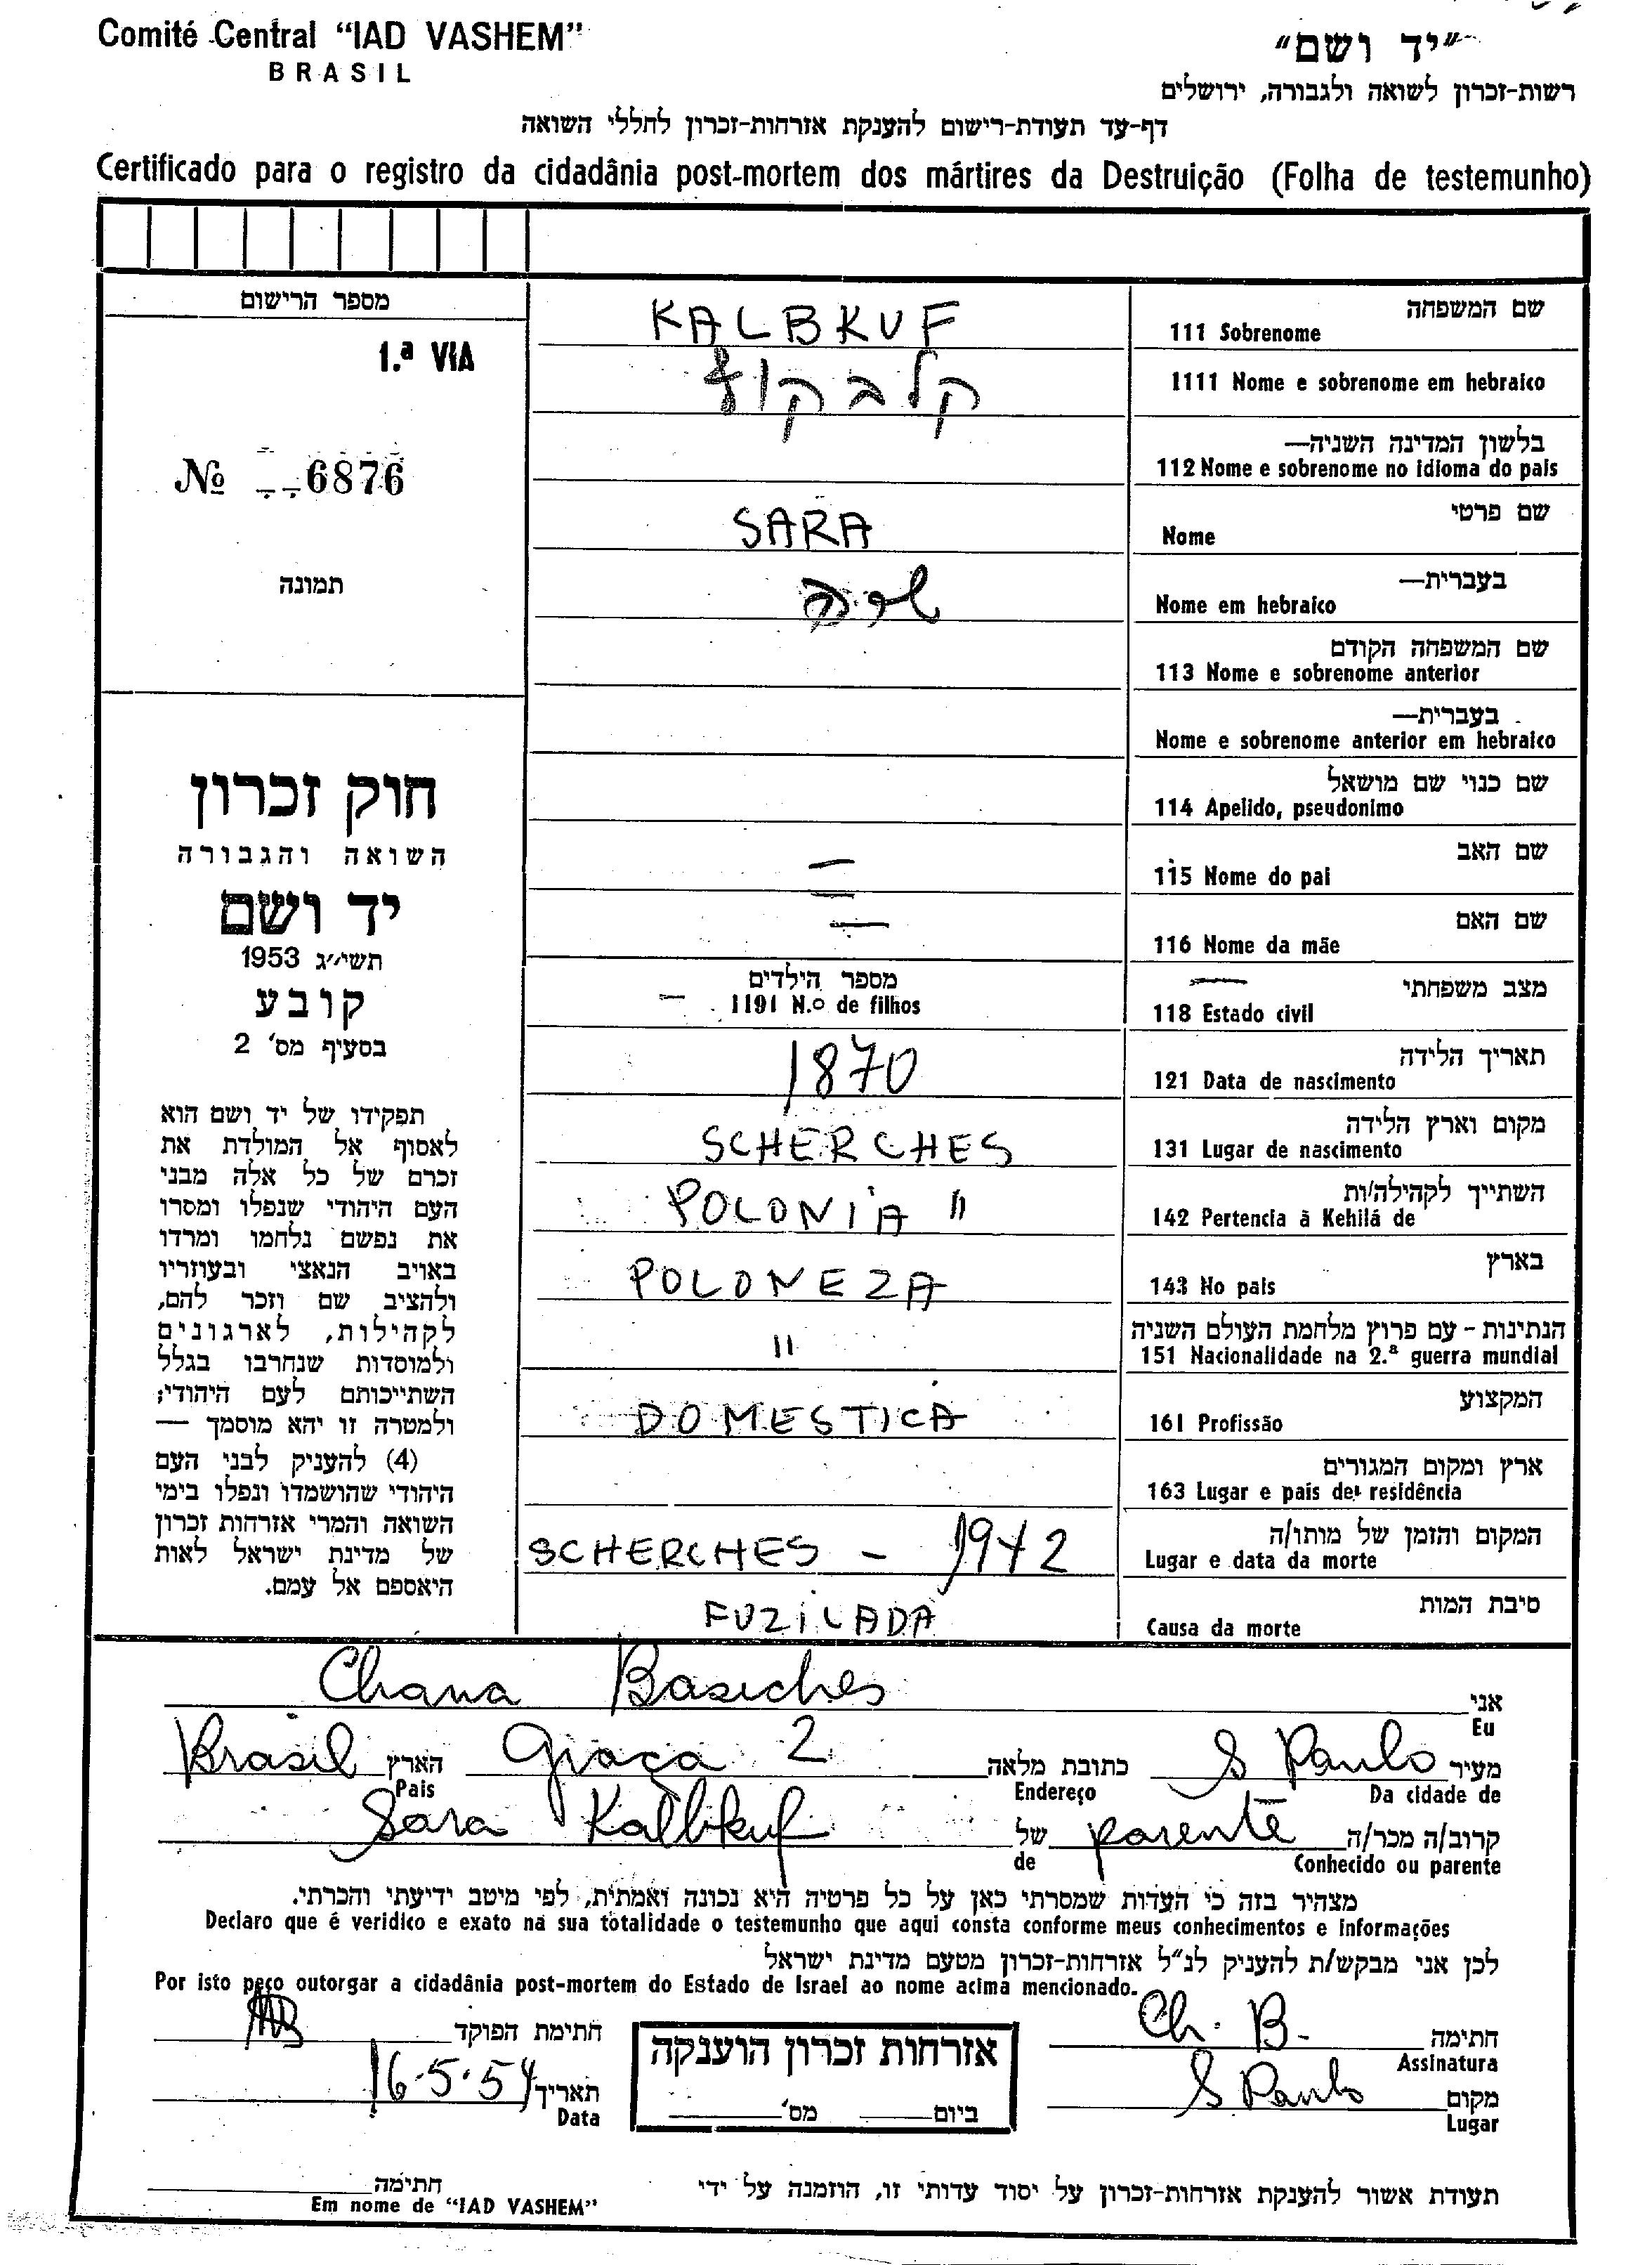 Comité Central “IAD VASHEM”
BRASIL
“יד ושם”
רשות-זכרון לשואה ולגבורה, ירושלים
דף-עד תעודת-רישום להענקת אזרחות-זכרון לחללי השואה
Certificado para o registro da cidadânia post-mortem dos mártires da Destruição (Folha de testemunho)
מספר הרישום
1.ª VIA
№ 6876
תמונה
חוק זכרון
השואה והגבורה
יד ושם
תשי״ג 1953
קובע
בסעיף מס' 2
תפקידו של יד ושם הוא
לאסוף אל המולדת את
זכרם של כל אלה מבני
העם היהודי שנפלו ומסרו
את נפשם נלחמו ומרדו
באויב הנאצי ובעוזריו
ולהציב שם וזכר להם,
לקהילות, לארגונים
ולמוסדות שנחרבו בגלל
השתייכותם לעם היהודי;
ולמטרה זו יהא מוסמך —
(4) להעניק לבני העם
היהודי שהושמדו ונפלו בימי
השואה והמרי אזרחות זכרון
של מדינת ישראל לאות
היאספם אל עמם.
שם המשפחה
111 Sobrenome KALBKUF
1111 Nome e sobrenome em hebraico קלבקוף
בלשון המדינה השניה—
112 Nome e sobrenome no idioma do pais
שם פרטי
Nome SARA
בעברית—
Nome em hebraico שרה
שם המשפחה הקודם
113 Nome e sobrenome anterior
בעברית—
Nome e sobrenome anterior em hebraico
שם כנוי שם מושאל
114 Apelido, pseudonimo
שם האב
115 Nome do pai —
שם האם
116 Nome da mãe —
מצב משפחתי
118 Estado civil —
מספר הילדים
1191 N.º de filhos —
תאריך הלידה
121 Data de nascimento 1870
מקום וארץ הלידה
131 Lugar de nascimento SCHERCHES
השתייך לקהילה/ות
142 Pertencia à Kehilá de POLONIA "
בארץ
143 No pais POLONEZA
הנתינות - עם פרוץ מלחמת העולם השניה
151 Nacionalidade na 2.ª guerra mundial "
המקצוע
161 Profissão DOMESTICA
ארץ ומקום המגורים
163 Lugar e pais de residência
המקום והזמן של מותו/ה
Lugar e data da morte SCHERCHES - 1942
סיבת המות
Causa da morte FUZILADA
אני Chana Basiches
Eu
מעיר S Paulo כתובת מלאה Graça 2 הארץ Brasil
Da cidade de Endereço Pais
קרוב/ה מכר/ה parente של Sara Kalbkuf
Conhecido ou parente de
מצהיר בזה כי העדות שמסרתי כאן על כל פרטיה היא נכונה ואמתית, לפי מיטב ידיעתי והכרתי.
Declaro que é veridico e exato na sua totalidade o testemunho que aqui consta conforme meus conhecimentos e informações
לכן אני מבקש/ת להעניק לנ״ל אזרחות-זכרון מטעם מדינת ישראל
Por isto peço outorgar a cidadânia post-mortem do Estado de Israel ao nome acima mencionado.
חתימה Ch. B.
Assinatura
חתימת הפוקד
אזרחות זכרון הוענקה
ביום מס'
מקום S Paulo
Lugar
תאריך 16.5.54
Data
תעודת אשור להענקת אזרחות-זכרון על יסוד עדותי זו, הוזמנה על ידי חתימה
Em nome de “IAD VASHEM”